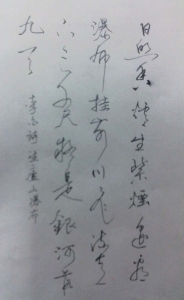 日照香炉生紫煙遥看
瀑布挂前川飞流直
下三千尺疑是銀河落
九天
李白詩望廬山瀑布